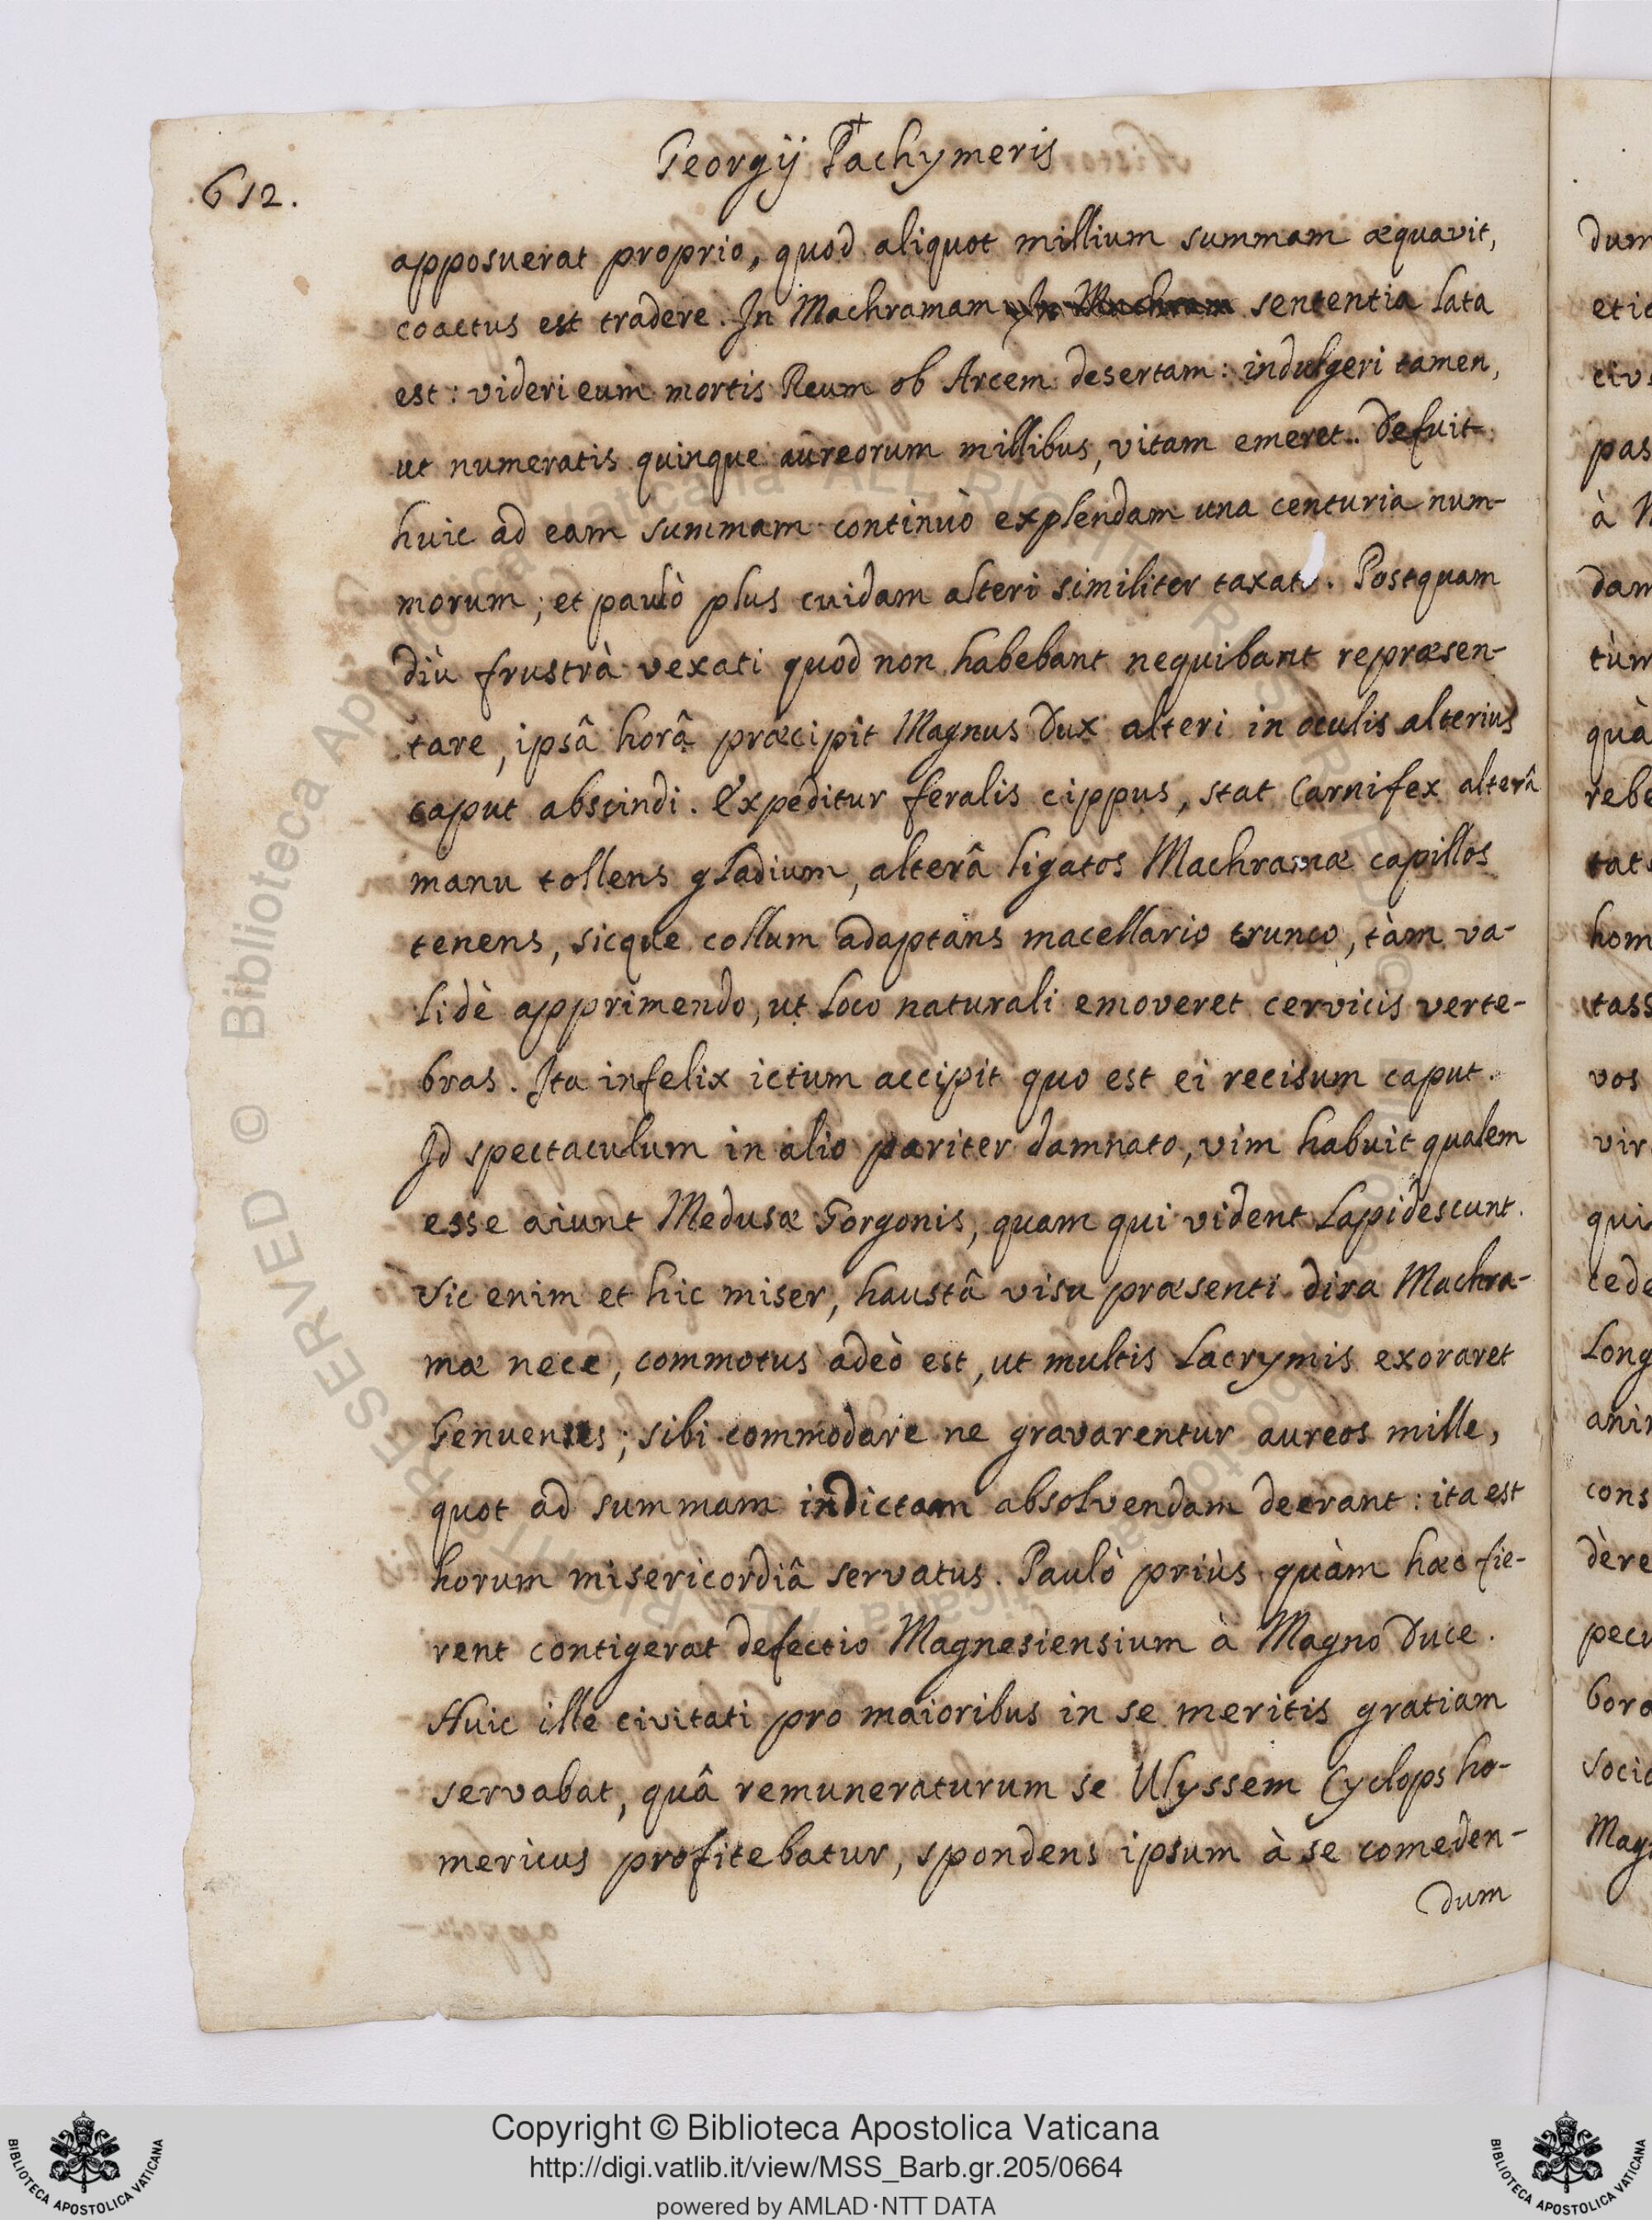 Georgij Pachymeris
612.
apposuerat proprio, quod aliquot millium summam æquavit,
coactus est tradere. In Machramam sententia lata
est: videri eum mortis Reum ob Arcem desertam: indulgeri tamen,
ut numeratis quinque aureorum millibus, vitam emeret.. Defuit
huic ad eam summam continuò explendam una centuria num-
morum; et paulò plus cuidam alteri similiter taxato. Postquam
diù frustrà vexati quod non habebant nequibant repræsen-
tare, ipsâ horâ præcipit Magnus Dux alteri in oculis alterius
caput abscindi. Expeditur feralis cippus, stat Carnifex alterâ
manu tollens gladium, alterâ ligatos Machramæ capillos
tenens, sicque collum adaptans macellario trunco, tàm va-
lidè apprimendo, ut loco naturali emoveret cervicis verte-
bras. Ita infelix ictum accipit quo est ei recisum caput.
Id spectaculum in alio pariter damnato, vim habuit qualem
esse aiunt Medusæ Gorgonis, quam qui vident lapidescunt.
Sic enim et hic miser, haustâ visu præsenti dira Machra-
mæ nece, commotus adeò est, ut multis lacrymis exoraret
Genuenses; sibi commodare ne gravarentur aureos mille,
quot ad summam indictam absolvendam deerant: ita est
horum misericordiâ servatus. Paulò priùs quàm hæc fie-
rent contigerat defectio Magnesiensium à Magno Duce.
Huic ille civitati pro maioribus in se meritis gratiam
servabat, quâ remuneraturum se Ulyssem Cyclops ho-
mericus profitebatur, spondens ipsum à se comeden-
dum
Copyright © Biblioteca Apostolica Vaticana
http://digi.vatlib.it/view/MSS_Barb.gr.205/0664
powered by AMLAD·NTT DATA
BIBLIOTECA APOSTOLICA VATICANA
BIBLIOTECA APOSTOLICA VATICANA